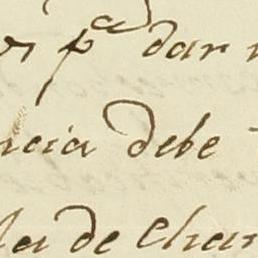 pᵃ dar
ncia debe
la de Chan